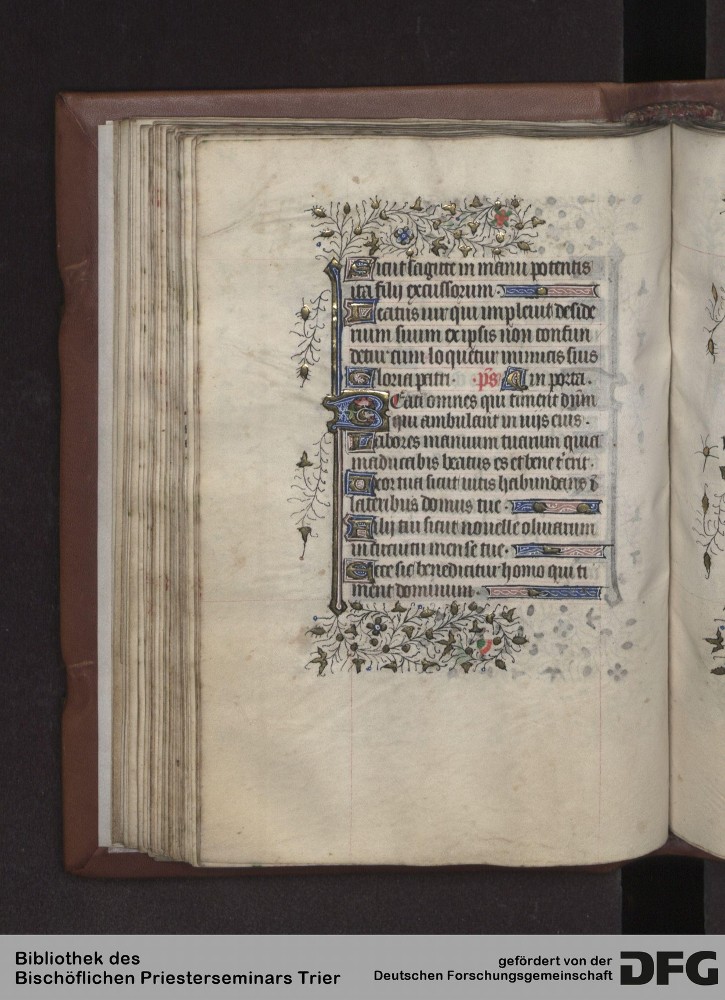 Sicut sagitte in manu potentis
ita filij excussorum.
Beatus uir qui impleuit deside
rium suum ex ipsis non confun
detur cum loquetur inimicis suis
Gloria patri. ps̄ Am porta.
Beati omnes qui timent dn̄m
qui ambulant in uijs eius.
Labores manuum tuarum quia
manducabis beatus es et bene t' erit.
Uxor tua sicut uitis habundans ī
lateribus domus tue.
Filij tui sicut nouelle oliuarum
in circuitu mense tue.
Ecce sic benedicitur homo qui ti
ment dominum.
Bibliothek des
Bischöflichen Priesterseminars Trier
gefördert von der
Deutschen Forschungsgemeinschaft
DFG